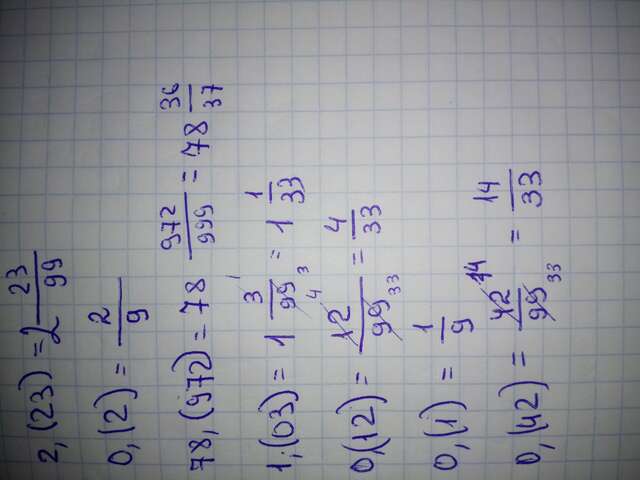 2,(23) = 2 23/99
0,(2) = 2/9
78,(972) = 78 972/999 = 78 36/37
1,(03) = 1 3/99 = 1 1/33
0,(12) = 12/99 = 4/33
0,(1) = 1/9
0,(42) = 42/99 = 14/33